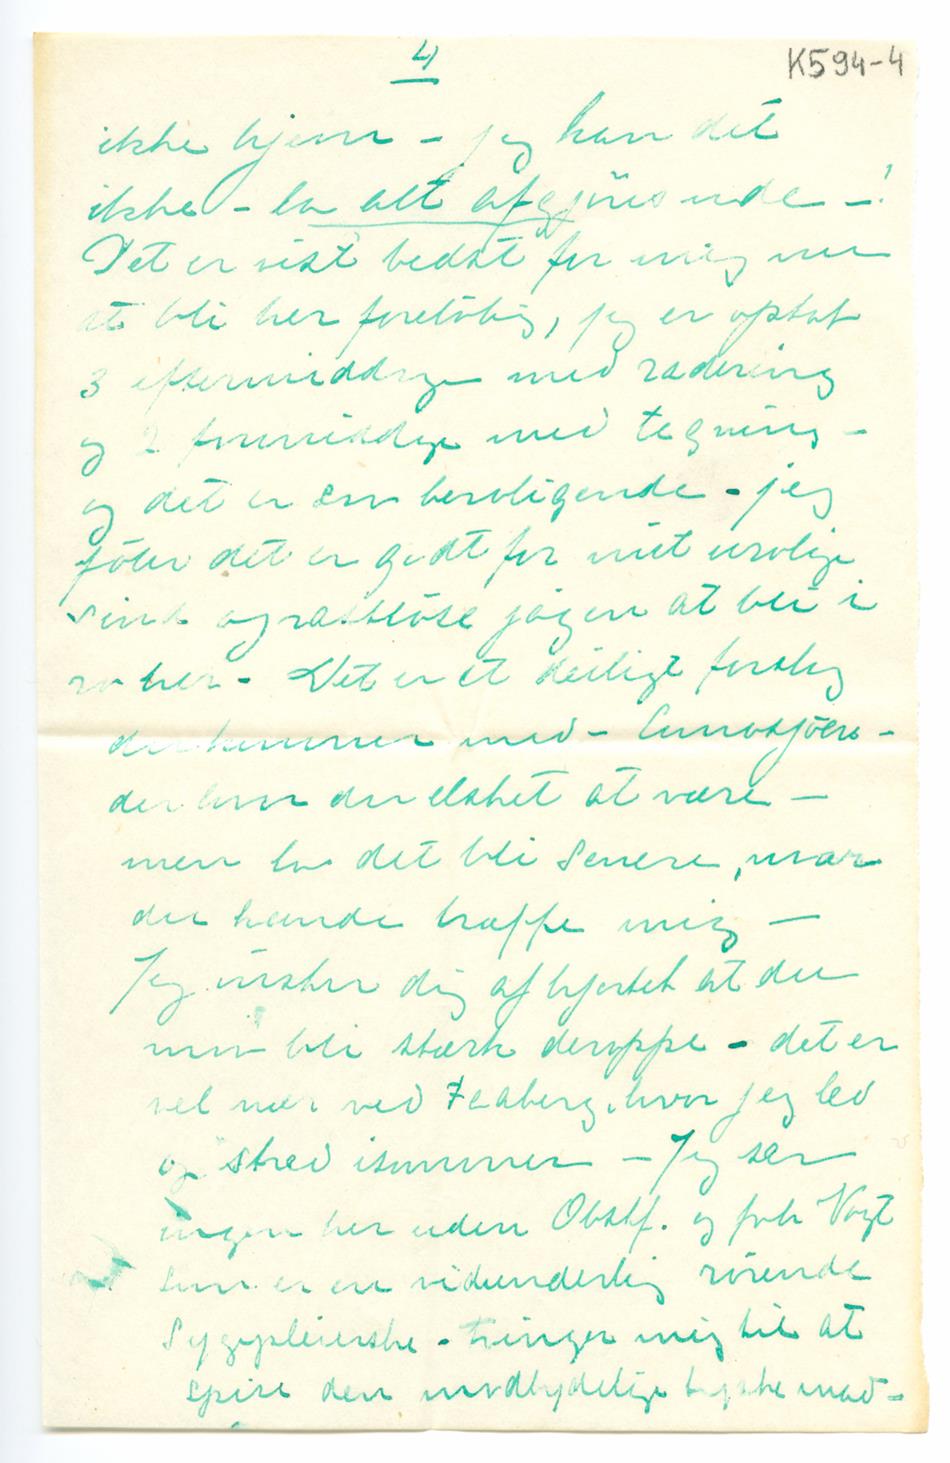 4
K594-4
ikke hjem – jeg kan det
ikke – la alt afgjöres ude –!
Det er vist bedst for mig nu
at bli her foreløbig, jeg er optat
3 eftermiddage med radering
og 2 formiddage med tegning –
og det er saa beroligende – jeg
föler det er godt for mit urolige
sind og rastlöse jagen at bli i
ro her – Det er et deiligt forslag
du kommer med –
der hvor du elsket at være –
men la det bli senere, naar
du kunde træffe mig –
Jeg ønsker dig af hjertet at du
maa bli stærk deroppe – det er
vel nær ved Faaberg, hvor jeg led
og stred isommer – Jeg ser
ingen her uden Obstf. og frk Vogt
som er en vidunderlig rörende
Sygepleierske – tvinger mig til at
spise den modbydelige tyske mad –